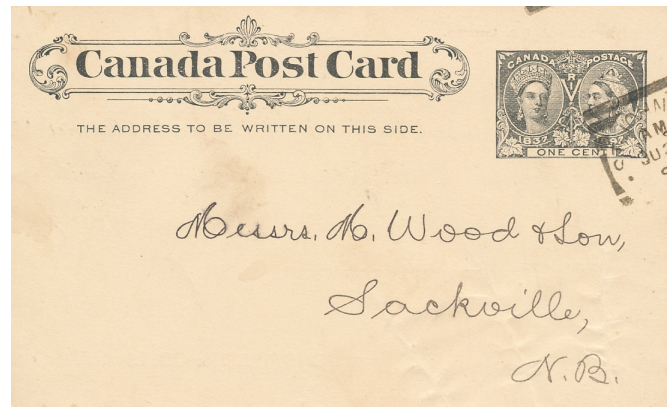 Canada Post Card
THE ADDRESS TO BE WRITTEN ON THIS SIDE.
CANADA POSTAGE
V R I
ONE CENT
Messrs. M. Wood & Son,
Sackville,
N.B.